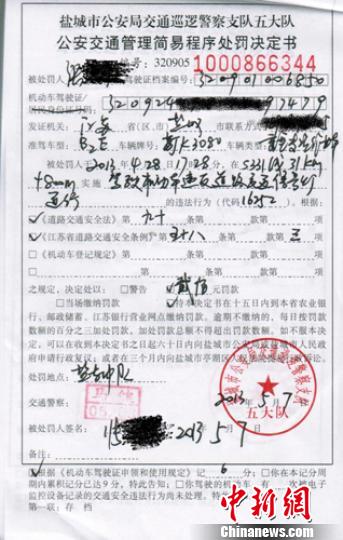 盐城市公安局交通巡逻警察支队五大队
公安交通管理简易程序处罚决定书
编号:320905 1000866344
被处罚人 驾驶证档案编号 320901006850
机动车驾驶证/
居民身份证号码 320924
发证机关: 江苏 省(区、市) 盐城 市联系方式
B2E 车辆牌号: 车辆类型:
被处罚人于 2013.4.28日17时28分,在S331线31km
+800m 实施 驾驶机动车违反道路交通信号灯
通行 的违法行为(代码16252)。根据:
《道路交通安全法》第 九十 条第 款第 项
《江苏省道路交通安全条例》第 五十八 条第 款第 三 项
□《机动车登记规定》第 条第 款第 项
之规定,决定处以:□警告 贰佰 元罚款
□当场缴纳罚款 持本决定书在十五日内到本省农业银
行、邮政储蓄、江苏银行营业网点缴纳罚款。逾期不缴纳的,每日按罚款
数额的百分之三加处罚款,加处罚款总额不得超出罚款数额。如不服本决
定,可以在收到本决定书之日起六十日内向盐城市公安局或盐城市人民政
府申请行政复议;或者在三个月内向盐城市亭湖区人民法院提起行政诉讼。
处罚地点:
交通警察: 2013年5月7日
盐城市公安局交通巡逻警察支队
五大队
被处罚人签名: 2013年5月7日
备注:
根据《机动车驾驶证申领和使用规定》记 6 分;□你在本记分周
期内累积记分已达9分,特此告知;□你驾驶的机动车,有 次被电子
监控设备记录的交通安全违法行为尚未处理,特此告知。
第一联:存档
中新网
Chinanews.com